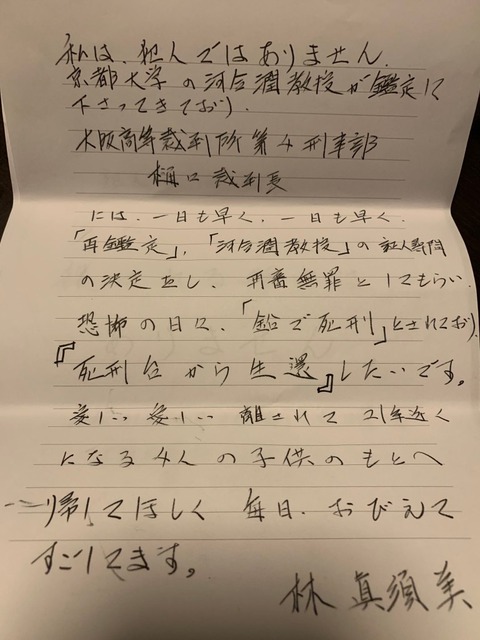 私は、犯人ではありません。
京都大学の河合潤教授が鑑定に
下さってきており、
大阪高等裁判所第4刑事部
樋口裁判長
には、一日も早く、一日も早く、
「再鑑定」,「河合潤教授」の証人尋問
の決定をし、再審無罪としてもらい、
恐怖の日々、「鉛で死刑」とされており、
『死刑台から生還』したいです。
愛しい愛しい離されて21年近く
になる4人の子供のもとへ
帰してほしく 毎日、おびえて
すごしてます。
林 眞須美